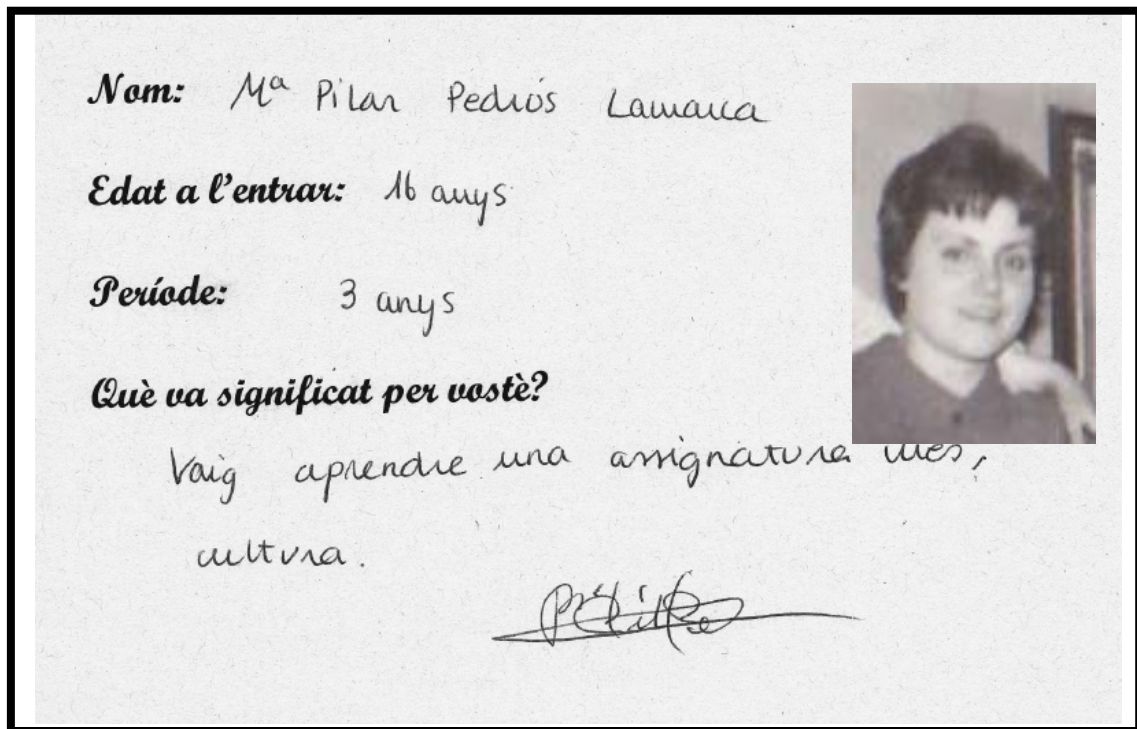 Nom: Mª Pilar Pedrós Lamarca
Edat a l'entrar: 16 anys
Període: 3 anys
Què va significat per vostè?
Vaig aprendre una assignatura més,
cultura.